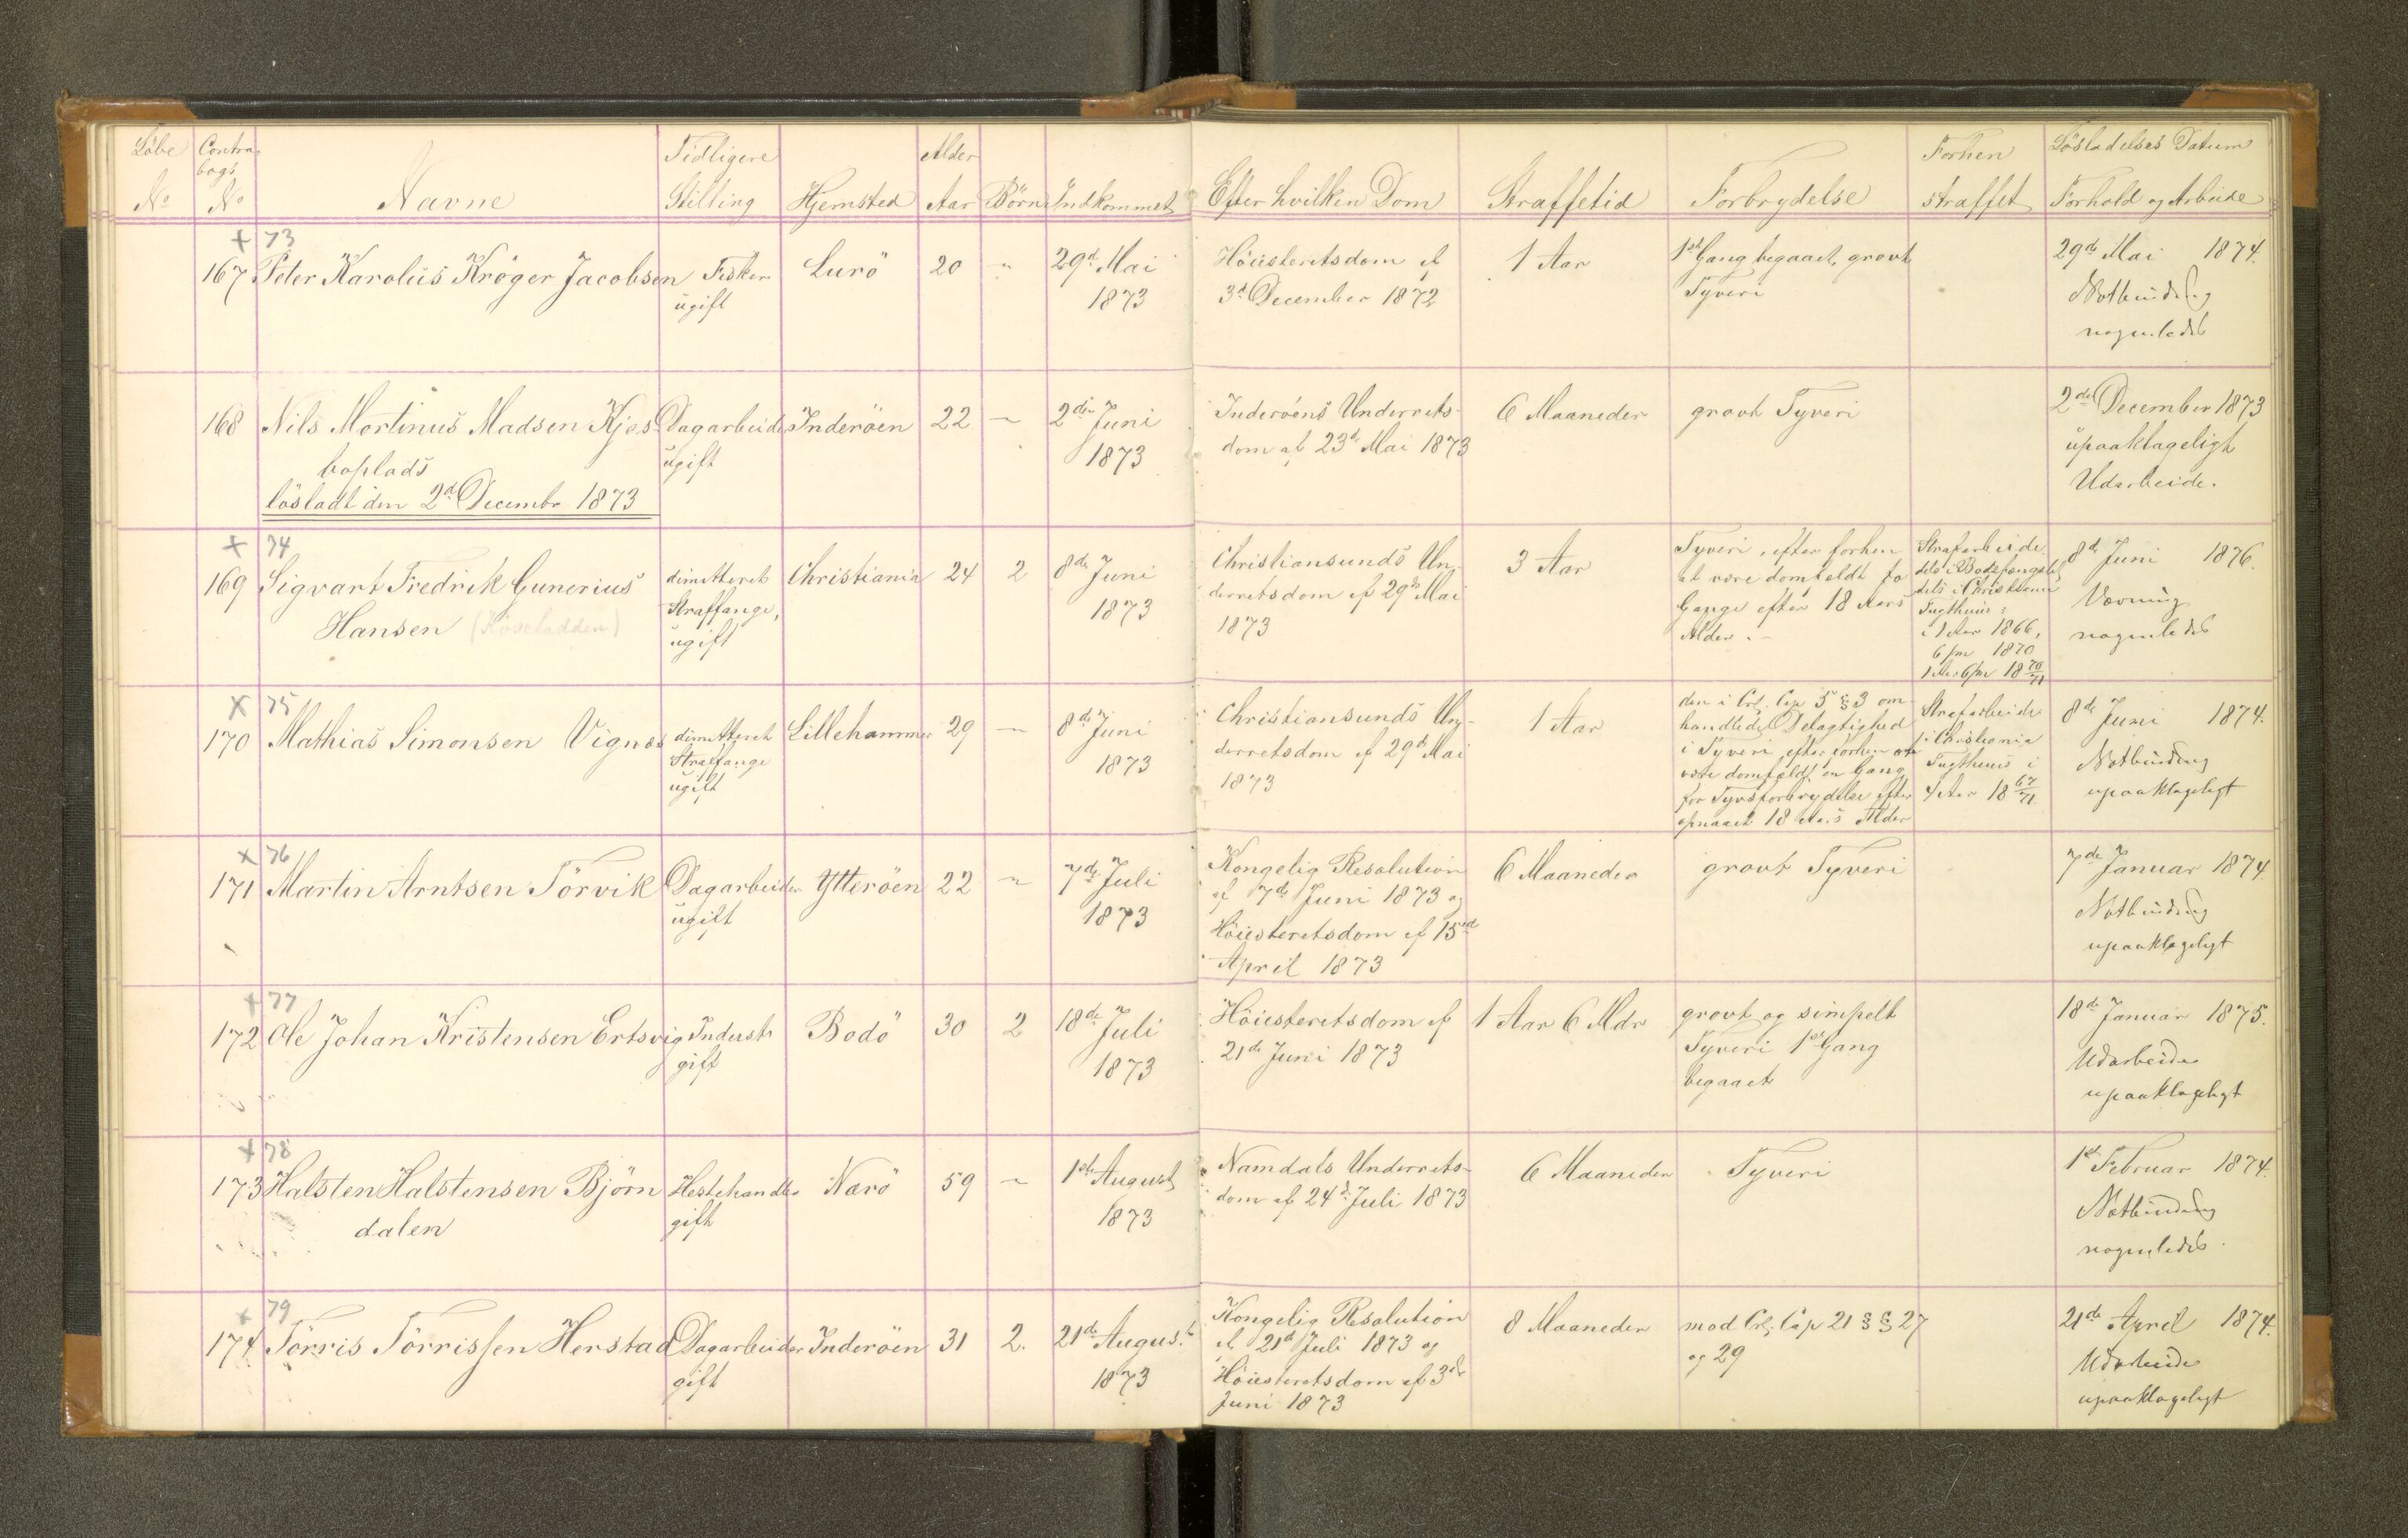 Löbe Contra- Tidligere Alder Forhen Lösladelses Datum
bogs
No No Navne Stilling Hjemsted Aar Börn Indkommet Efter hvilken Dom Straffetid Forbrydelse straffet Forhold og Arbeide
+ 73
167 Peter Karolus Kröger Jacobsen Fisker Lurö 20 " 29d Mai Höiesteretsdom af 1 Aar 1ste Gang begaaet grovt 29de Mai 1874.
ugift 1873 3d December 1872 Tyveri Notbinding
nogenledes
168 Nils Martinus Madsen Kjes- Dagarbeider Inderöen 22 – 2den Juni Inderöens Underrets- 6 Maaneder grovt Tyveri 2det December 1873
boplads ugift 1873 dom af 23d Mai 1873 upaaklageligt
lösladt den 2d Decembr 1873 Udarbeide.
+ 74
169 Sigvart Fredrik Gunerius dimitteret Christiania 24 2 8de Juni Christiansunds Un- 3 Aar Tyveri, efter forhen Strafarbeide 8de Juni 1876.
Hansen straffange, 1873 derretsdom af 29de Mai at være domfældt to dels i Bodsfængslet Vævning
ugift 1873 Gange efter 18 Aars dels i Christiania nogenledes
Alder.– Tugthuus:
i 1 Aar 1866,
6 1870
1 Aar 6 18 70/71
x 75
170 Mathias Simonsen Vignæs dimitteret Lillehammer 29 – 8de Juni Christiansunds Un- 1 Aar den i Crl. Cap 5 § 3 om- Strafarbeide 8de Juni 1874.
Straffange 1873 derretsdom af 29d Mai handlede Delagtighed i Christiania Notbinding
ugift 1873 i Tyveri, efter forhen at Tugthuus i upaaklageligt
være domfældt en Gang 4 Aar 18 67/71
for Tyvsforbrydelse efter
opnaaet 18 Aars Alder
x 76
171 Martin Arntsen Törvik Dagarbeider Ytteröen 22 – 7de Juli Kongelig Resolution 6 Maaneder grovt Tyveri 7de Januar 1874.
ugift 1873 af 7de Juni 1873 og Notbinding
Höiesteretsdom af 15de upaaklageligt
April 1873
+ 77
172 Ole Johan Kristensen Ertsvig Inderst Bodö 30 2 18de Juli Höiesteretsdom af 1 Aar 6 Mdr grovt og simpelt 18de Januar 1875.
gift 1873 21de Juni 1873 Tyveri 1ste Gang Udarbeide
begaaet upaaklageligt
+ 78
173 Halsten Halstensen Björn Hestehandler Nærö 59 – 1ste August Namdals Underrets- 6 Maaneder Tyveri 1ste Februar 1874.
dalen gift 1873 dom af 24de Juli 1873 Notbinding
nogenledes.
+ 79
174 Törris Törrissen Herstad Dagarbeider Inderöen 31 2. 21de August Kongelig Resolution 8 Maaneder mod Crl. Cap 21 §§ 27 21de April 1874.
gift 1873 af 21d Juli 1873 og og 29 Udarbeide
Höiesteretsdom af 3de upaaklageligt
Juni 1873